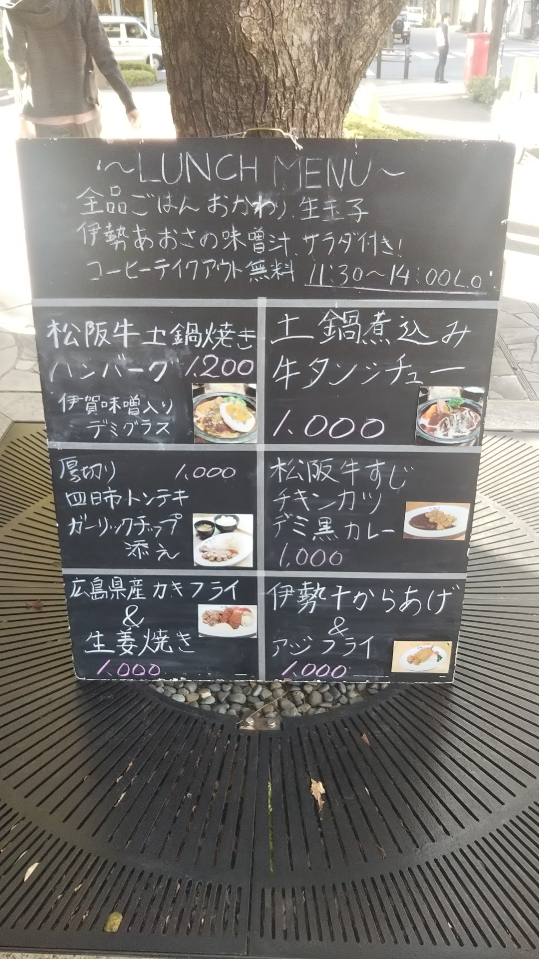 ～LUNCH MENU～
全品ごはんおかわり、生玉子
伊勢あおさの味噌汁、サラダ付き!
コーヒーテイクアウト無料 11:30～14:00L.O
松阪牛土鍋焼き
ハンバーグ 1,200
伊賀味噌入り
デミグラス
土鍋煮込み
牛タンシチュー
1,000
厚切り 1,000
四日市トンテキ
ガーリックチップ
添え
松阪牛すじ
チキンカツ
デミ黒カレー
1,000
広島県産カキフライ
&
生姜焼き
1,000
伊勢千からあげ
&
アジフライ
1,000